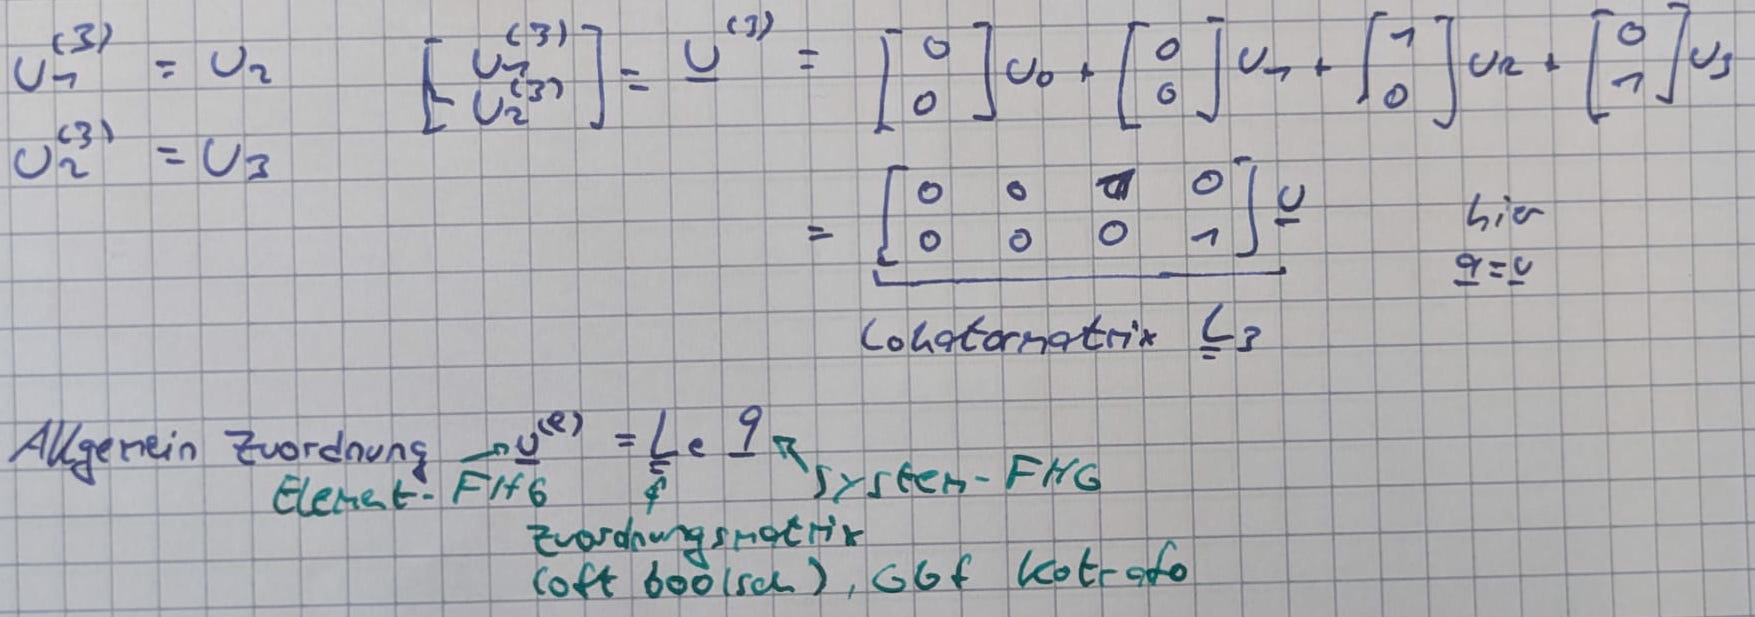 U₁⁽³⁾ = U₂ [U₁⁽³⁾ U₂⁽³⁾] = U⁽³⁾ = [0 0] U₀ + [0 0] U₁ + [1 0] U₂ + [0 1] U₃
U₂⁽³⁾ = U₃
= [0 0 1 0
0 0 0 1] U
hier
q = U
Lokatormatrix L₃
Allgemein Zuordnung → U⁽ᵉ⁾ = Lₑ q
Element-FHG System-FHG
Zuordnungsmatrix
(oft boolsch), GGf Kotrafo